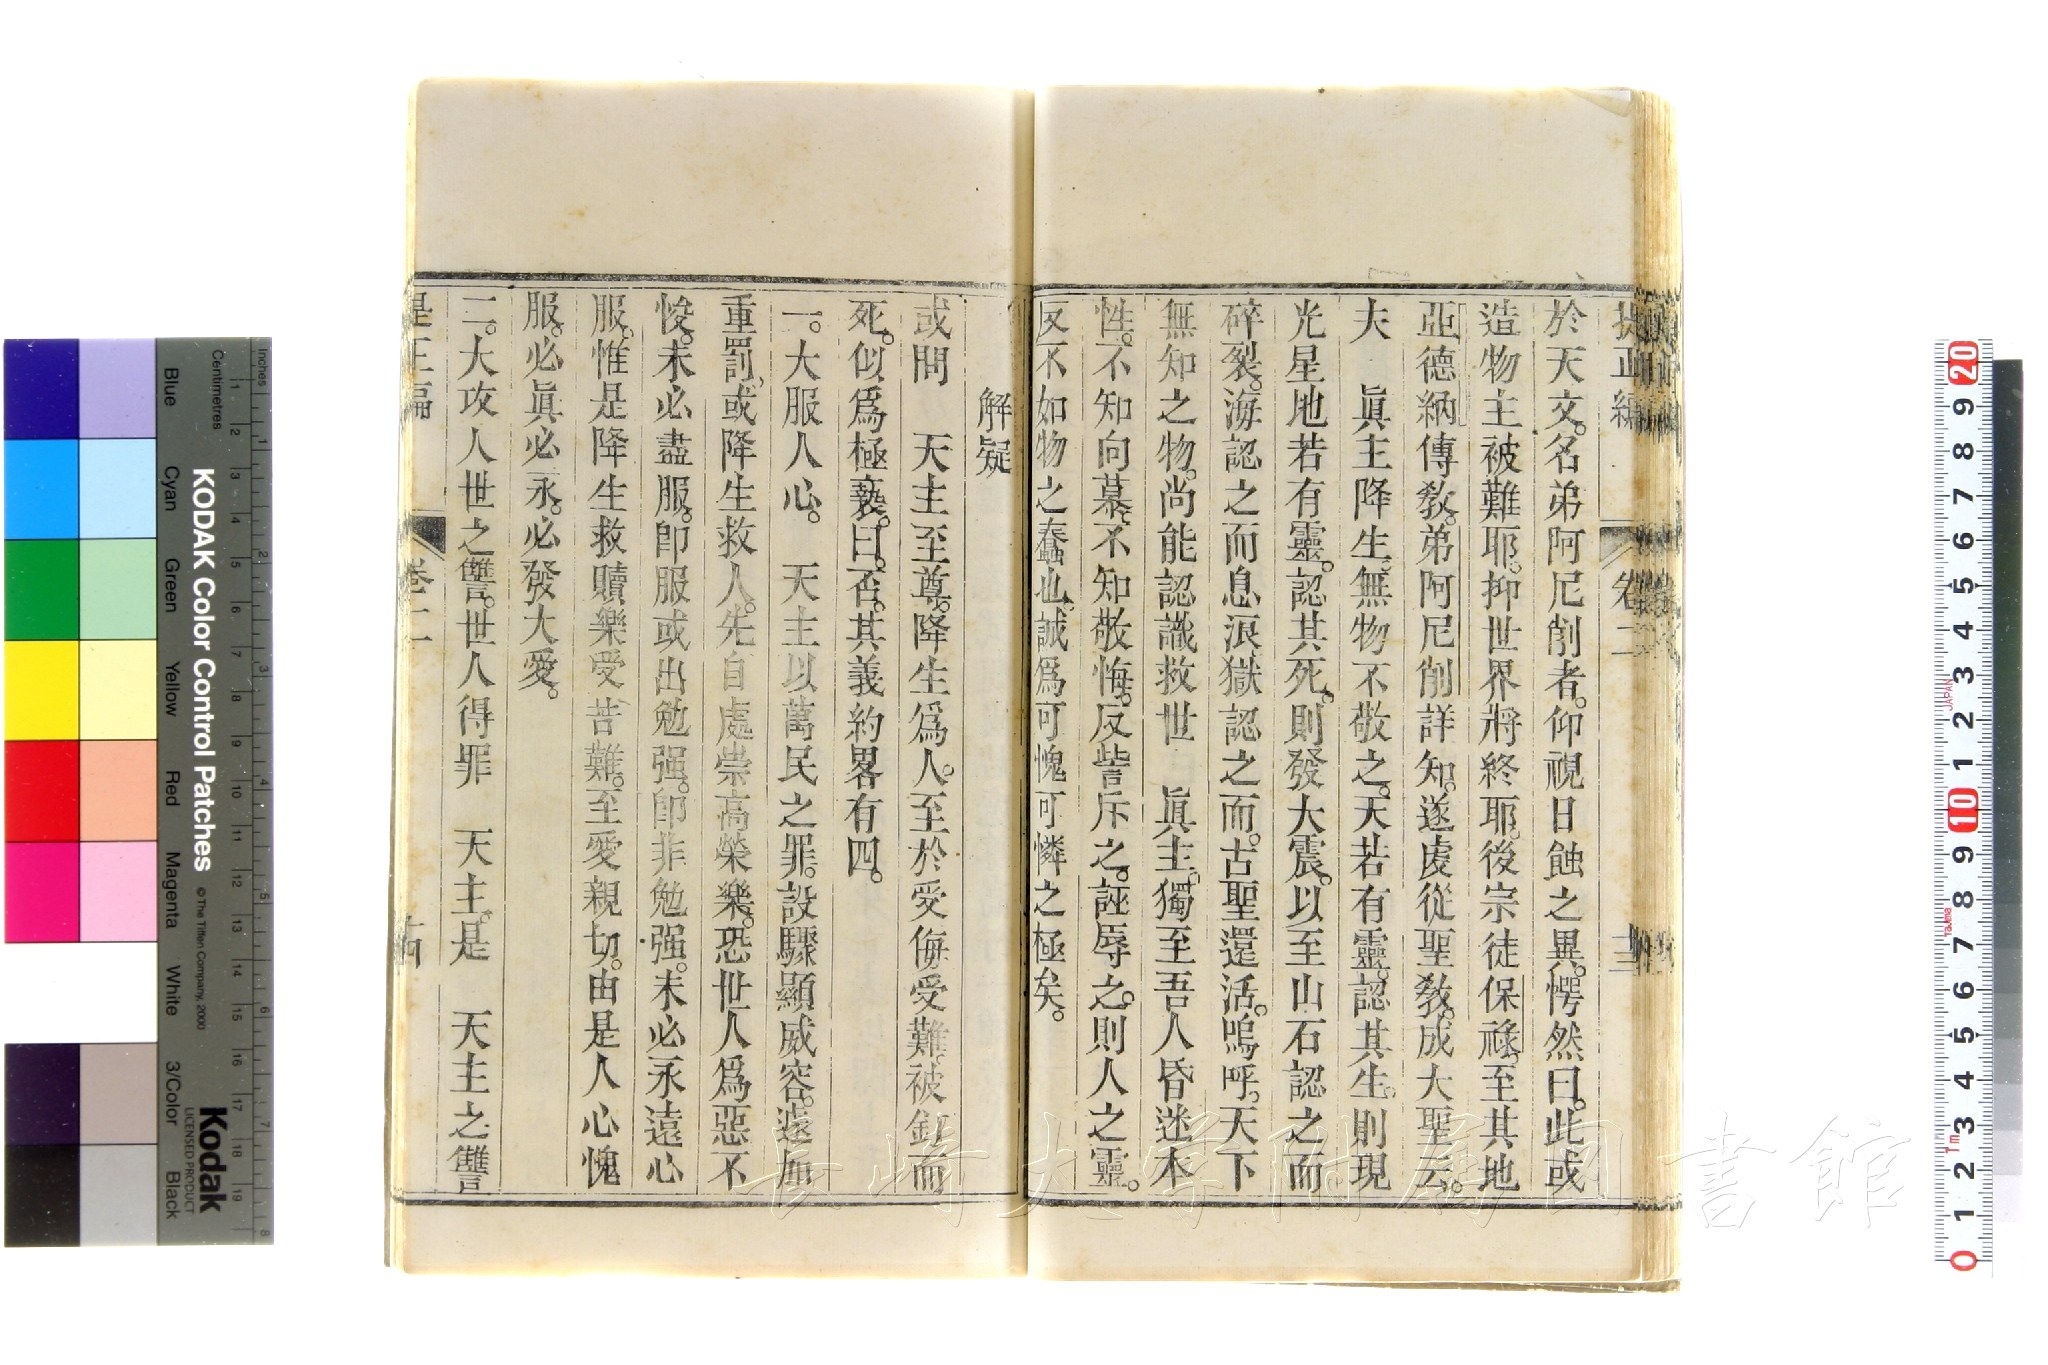 提正編 卷二
於天文。名弟阿尼削者。仰視日蝕之異。愕然曰。此或
造物主被難耶。抑世界將終耶。後宗徒保祿。至其地
亞德納傳教。弟阿尼削詳知。遂虔從聖教。成大聖云。
夫　眞主降生。無物不敬之。天若有靈。認其生。則現
光星。地若有靈。認其死。則發大震。以至山石認之而
碎裂。海認之而息浪。獄認之而。古聖還活。嗚呼。天下
無知之物。尚能認識救世　眞主。獨至吾人昏迷本
性。不知向慕。不知敬悔。反訾斥之。誣辱之。則人之靈。
反不如物之蠢也。誠爲可愧可憐之極矣。
解疑
或問　天主至尊。降生爲人。至於受侮受難。被釘而
死。似爲極褻。曰。否。其義約畧有四。
一。大服人心。　天主以萬民之罪。設驟顯威容。遽加
重罰。或降生救人。先自處崇高榮樂。恐世人爲惡不
悛。未必盡服。卽服或出勉强。卽非勉强。未必永遠心
服。惟是降生救贖。樂受苦難。至愛親切。由是人心愧
服。必眞必永。必發大愛。
二。大攻人世之讐。世人得罪　天主。是　天主之讐
是正編 卷二 十四
KODAK Color Control Patches
© The Tiffen Company, 2000
Kodak
LICENSED PRODUCT
Inches
Centimetres
Blue
Cyan
Green
Yellow
Red
Magenta
White
3/Color
Black
JAPAN
長崎大学附属図書館